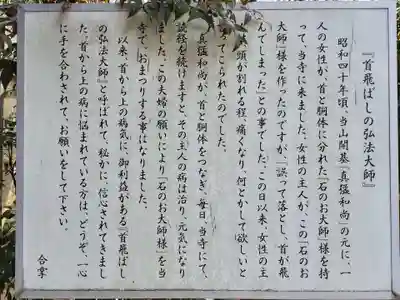 『首飛ばしの弘法大師』
昭和四十年頃、当山開基『真猛和尚』の元に、一
人の女性が、首と胴体に分れた『石のお大師』様を持
って、当寺に来ました。女性の主人が、この『石のお
大師』様を作ったのですが、「誤って落とし、首が飛
んでしまった」との事でした。「この日以来、女性の主
人、頭が割れる程、痛くなり、何とかして欲しいと
来てこられたのでした。
『真猛和尚』が、首と胴体をつなぎ、毎日、当寺にて、
読経を続けますと、その主人の病は治り、元気になり
ました。この夫婦の願いにより『石のお大師様』を当
寺で、おまつりする事になりました。
以来、首から上の病気に、御利益がある『首飛ばし
の弘法大師』と呼ばれて、秘かに、信心されてきまし
た。首から上の病に悩まれている方は、どうぞ、一心
に手を合わされて、お願いをして下さい。
合掌